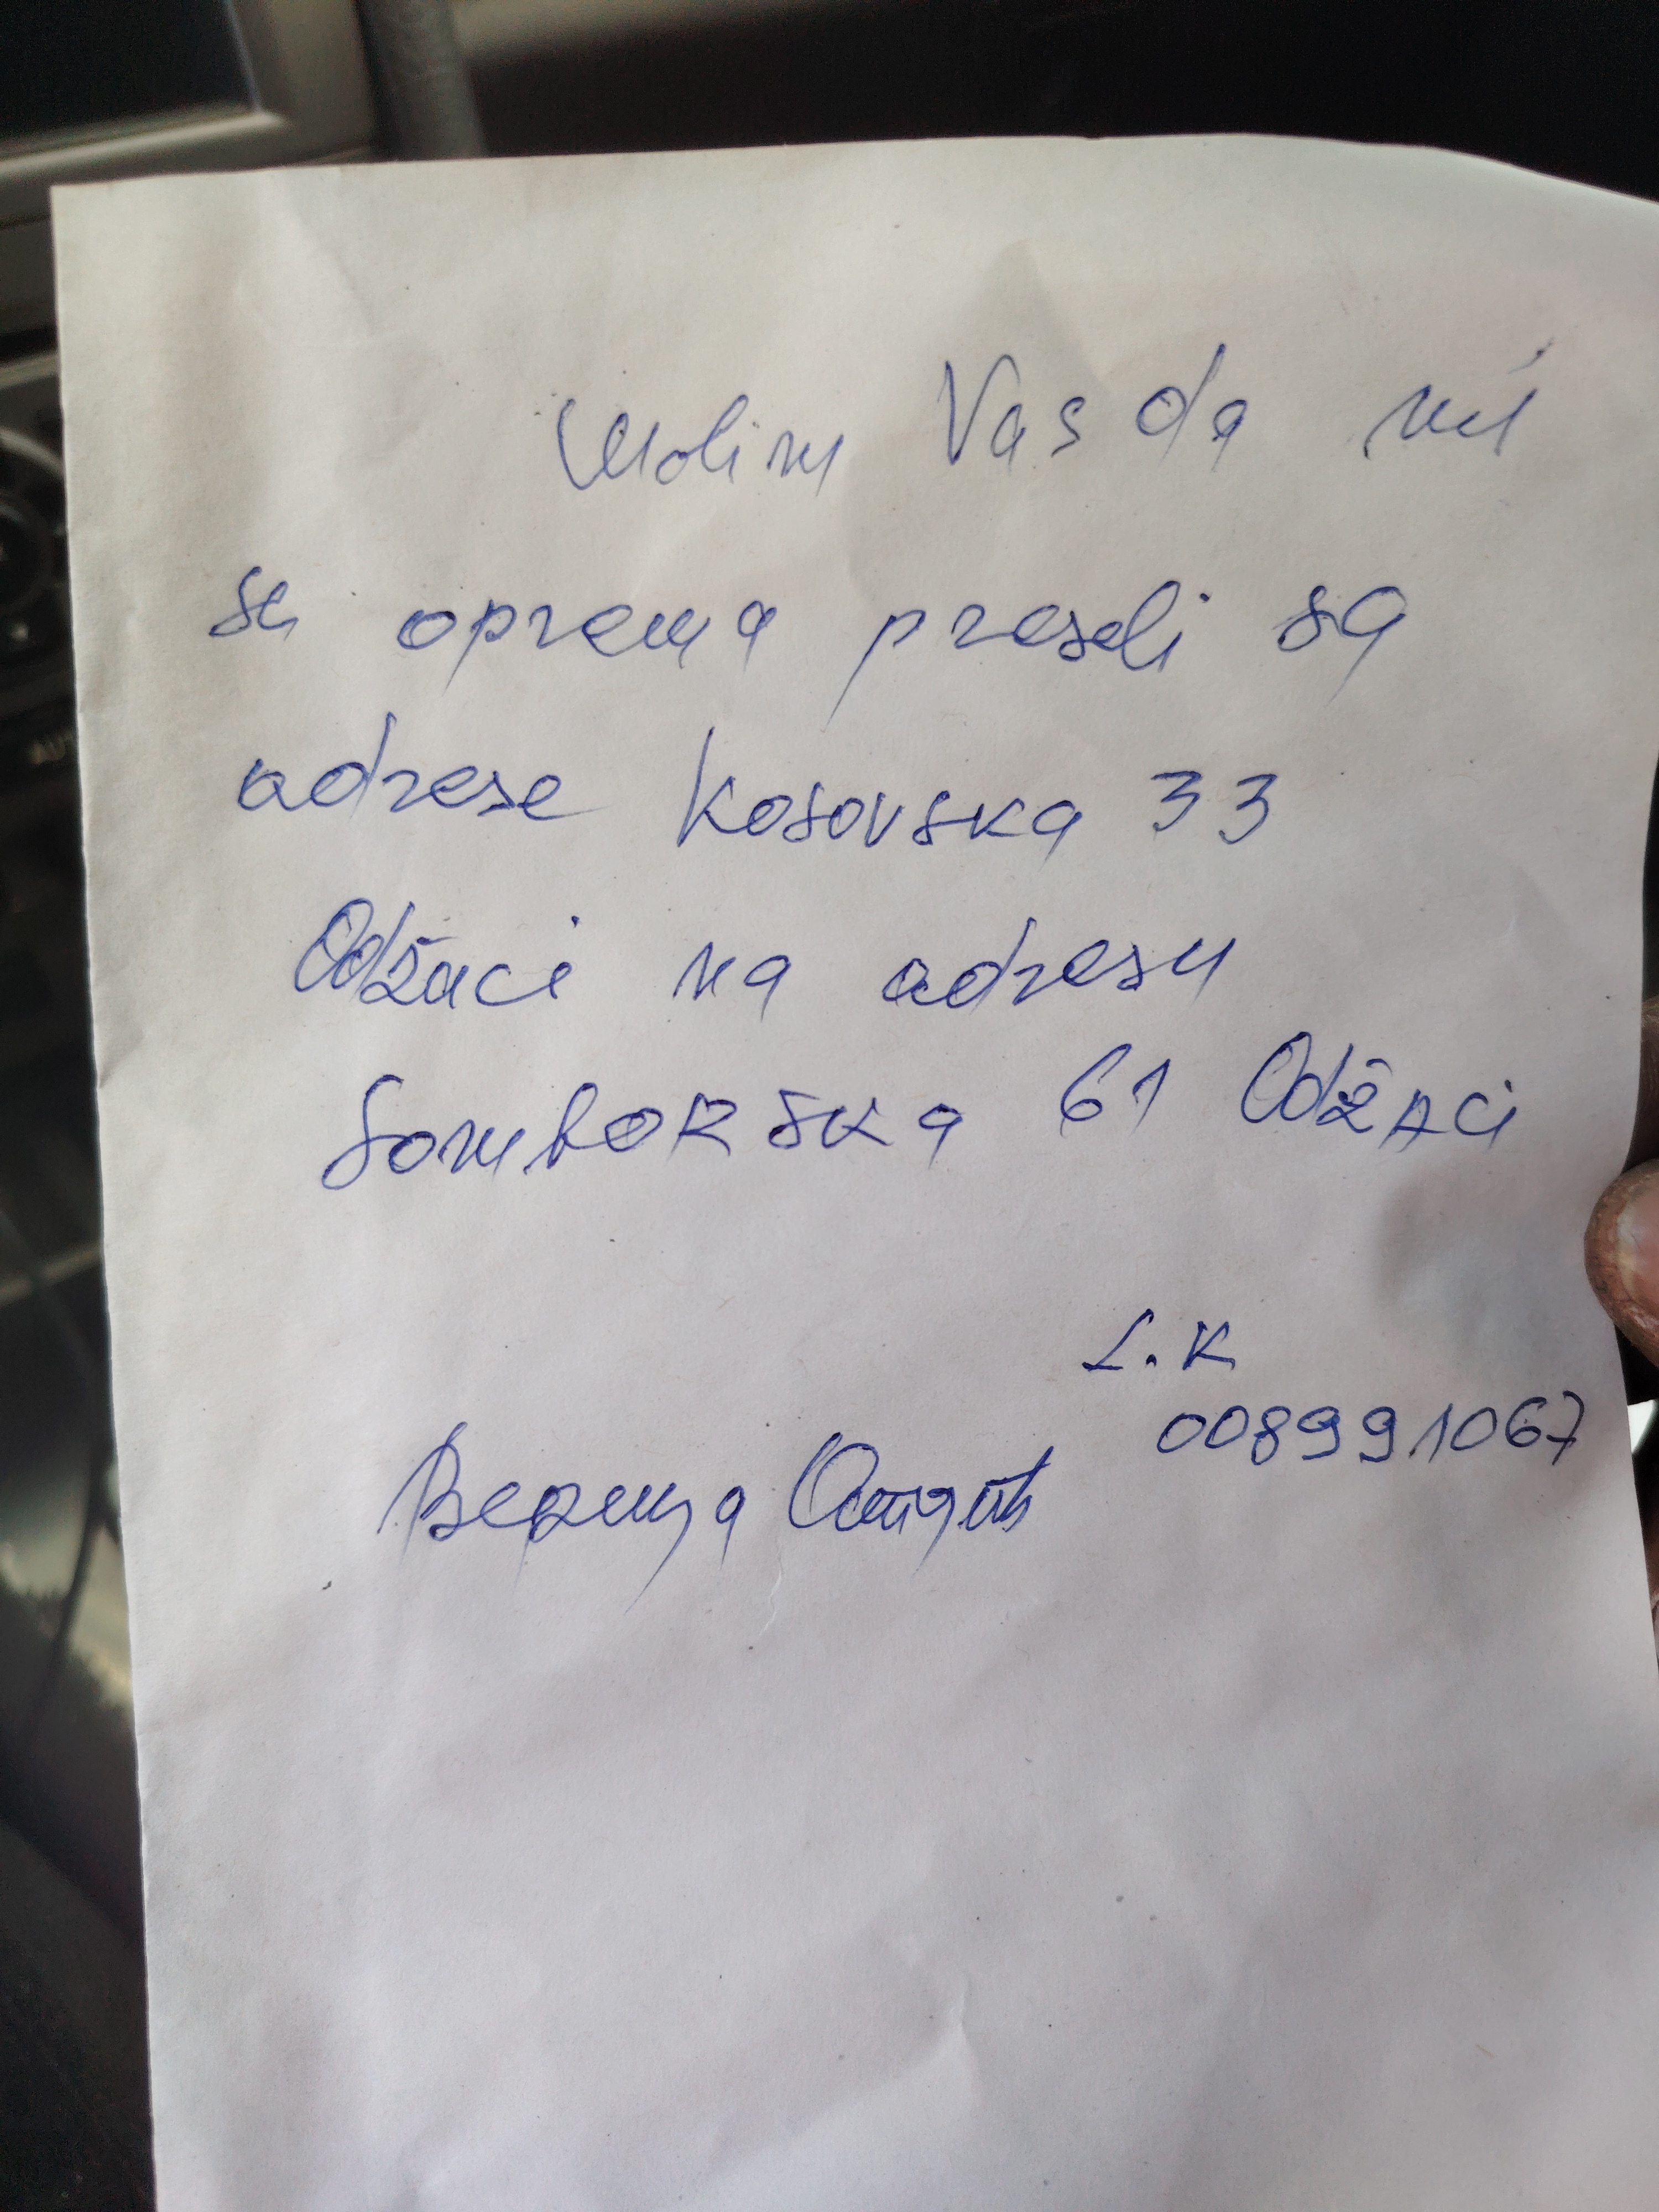 Molim Vas da mi
se oprema preseli sa
adrese Kosovska 33
Odžaci na adresu
Somborska 61 Odžaci
L.K
008991067
Верица